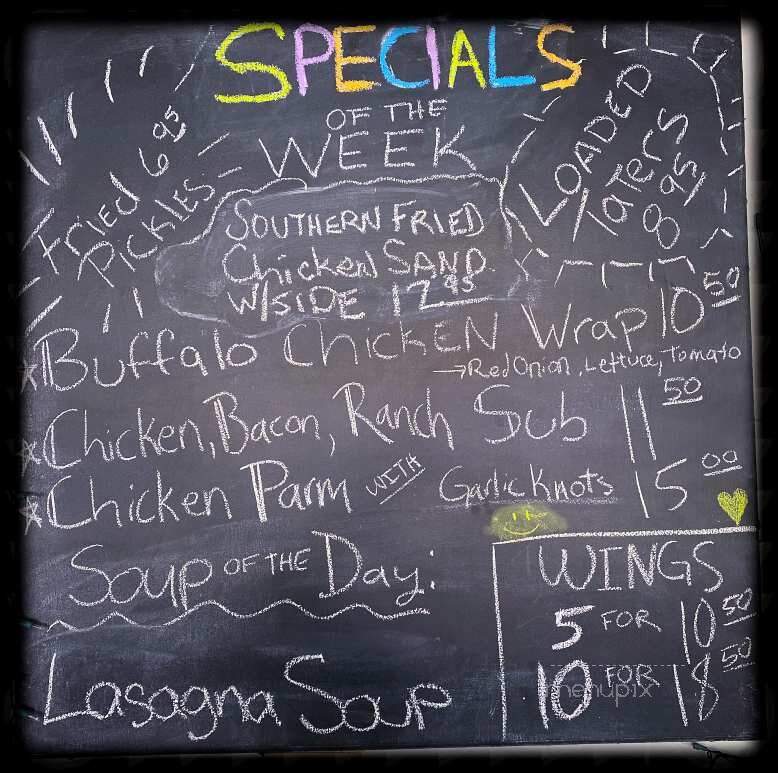 SPECIALS
OF THE
WEEK
Fried 6 95
PICKLES
LOADED
TaTerS
8 95
SOUTHERN FRIED
Chicken SAND.
W/SIDE 17.95
*Buffalo ChicKEN Wrap 10 50
→Red Onion, Lettuce, Tomato
*Chicken, Bacon, Ranch Sub 11 50
*Chicken Parm WITH Garlic Knots 15 00
Soup OF THE Day:
Lasagna Soup
WINGS
5 FOR 10 50
10 FOR 18 50
menupix